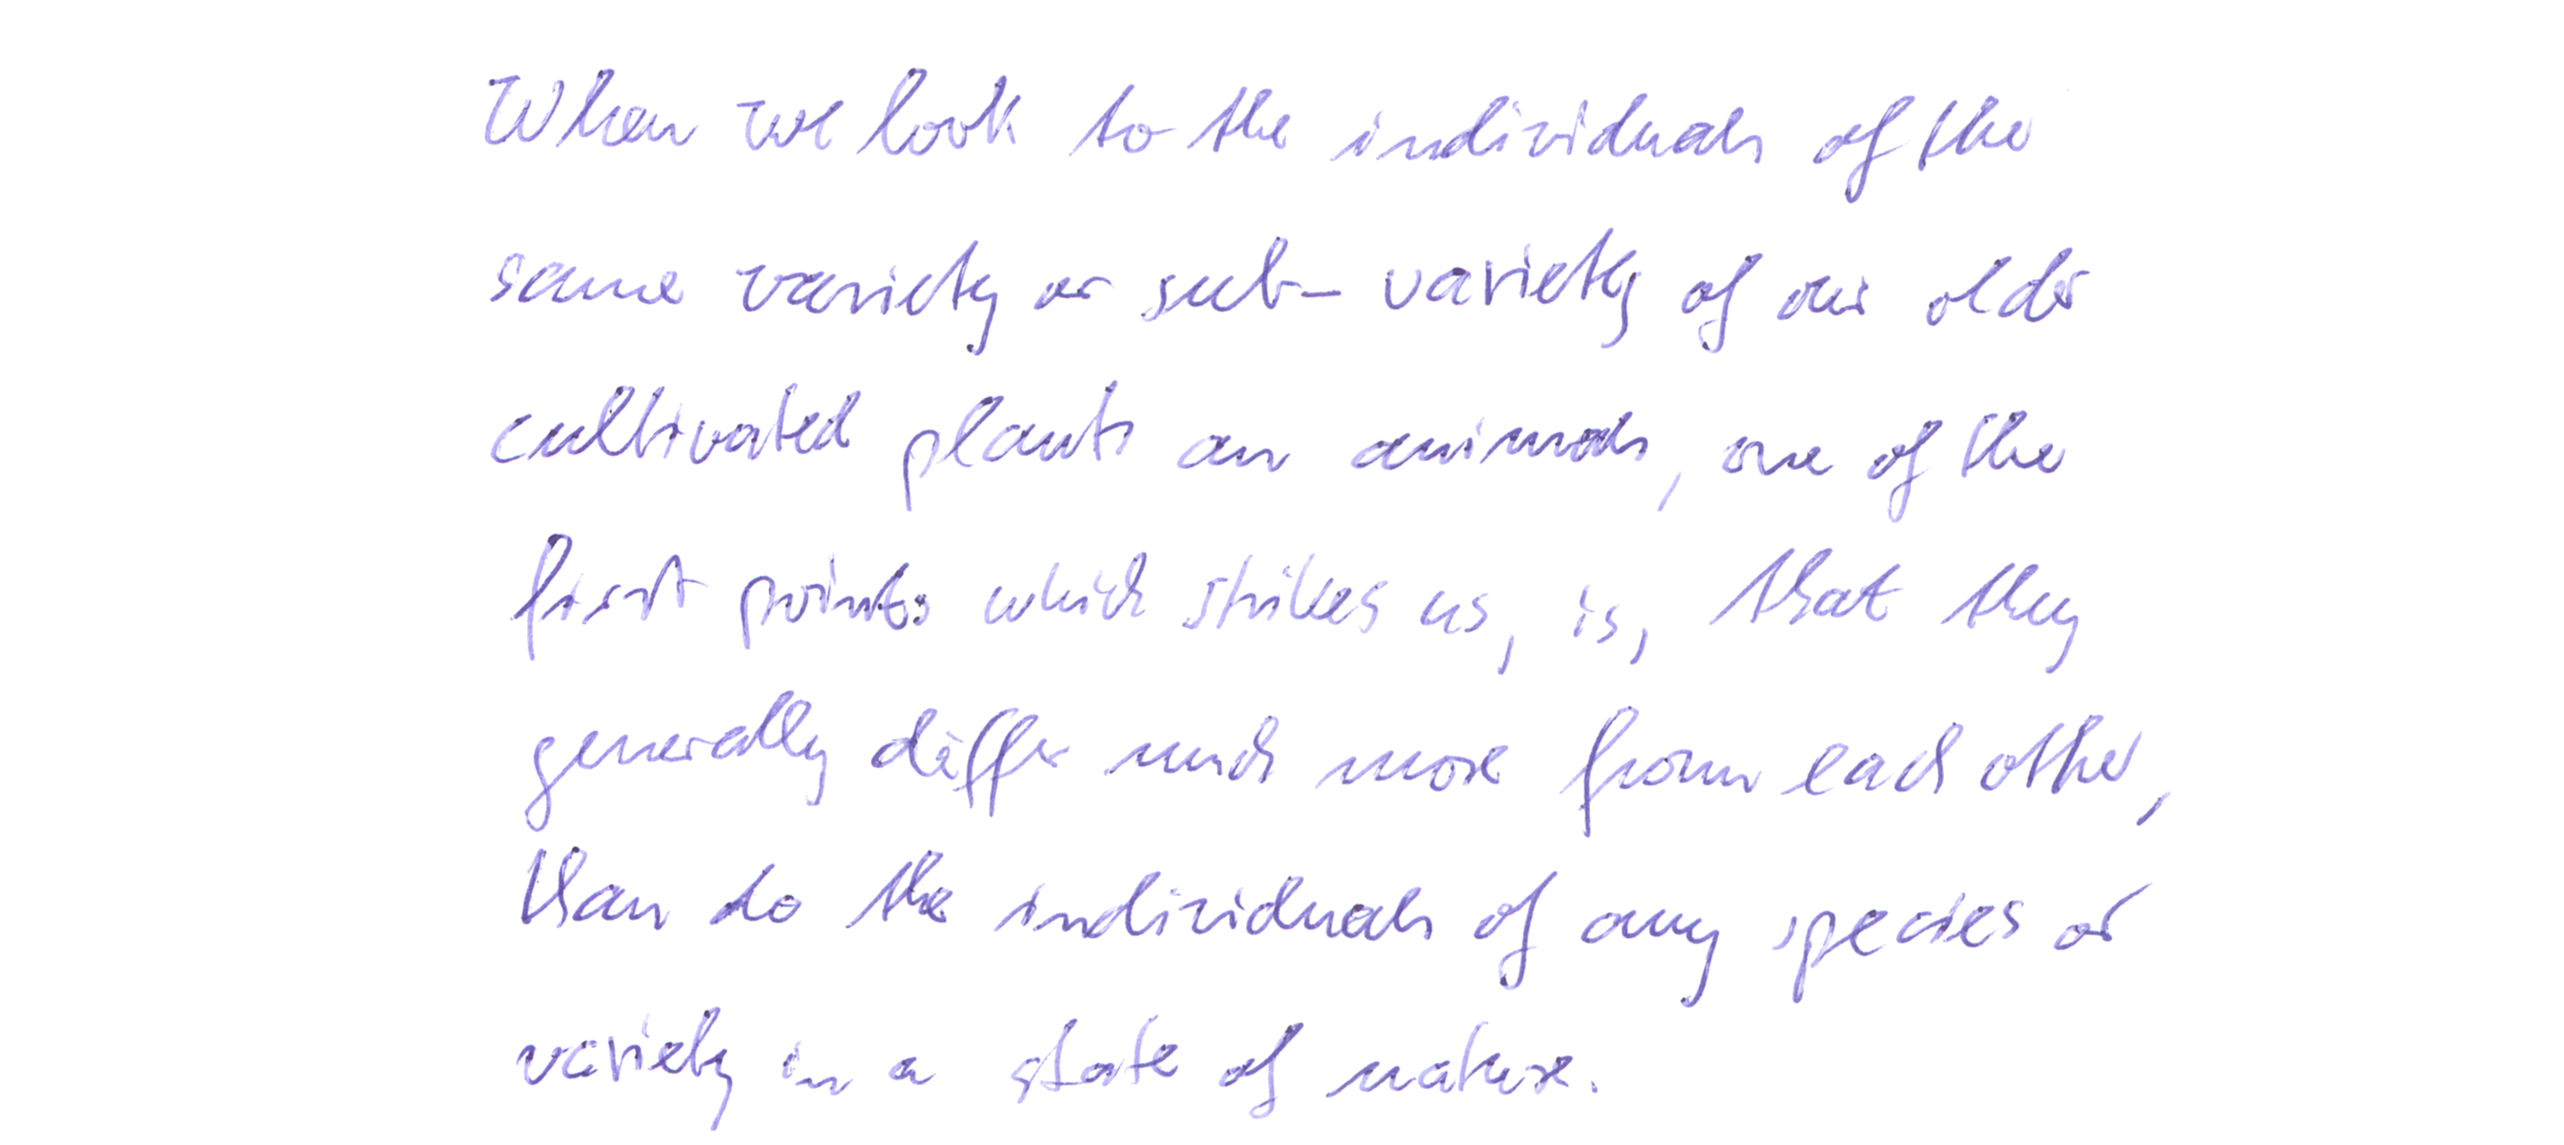 When we look to the individuals of the
same variety or sub-variety of our older
cultivated plants an animals, one of the
first points which strikes us, is, that they
generally differ much more from each other,
than do the individuals of any species or
variety in a state of nature.